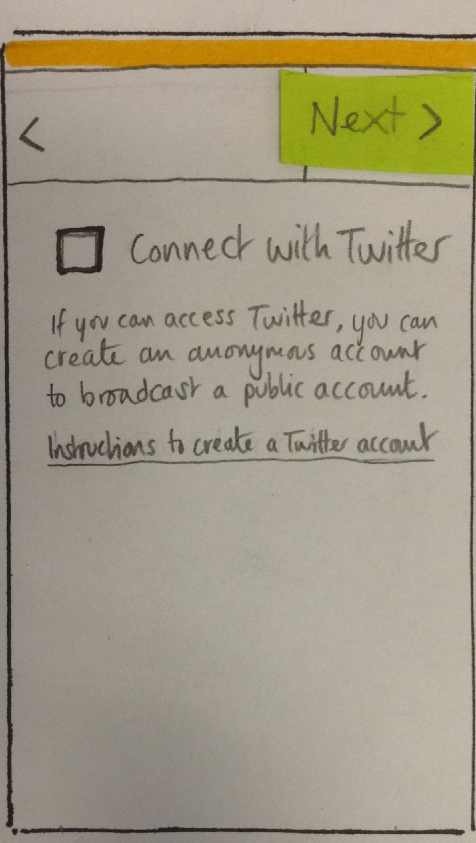 <
Next >
Connect with Twitter
If you can access Twitter, you can
create an anonymous account
to broadcast a public account.
Instructions to create a Twitter account